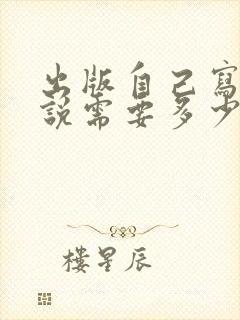 出版自己寫
說需要多少
樓星辰